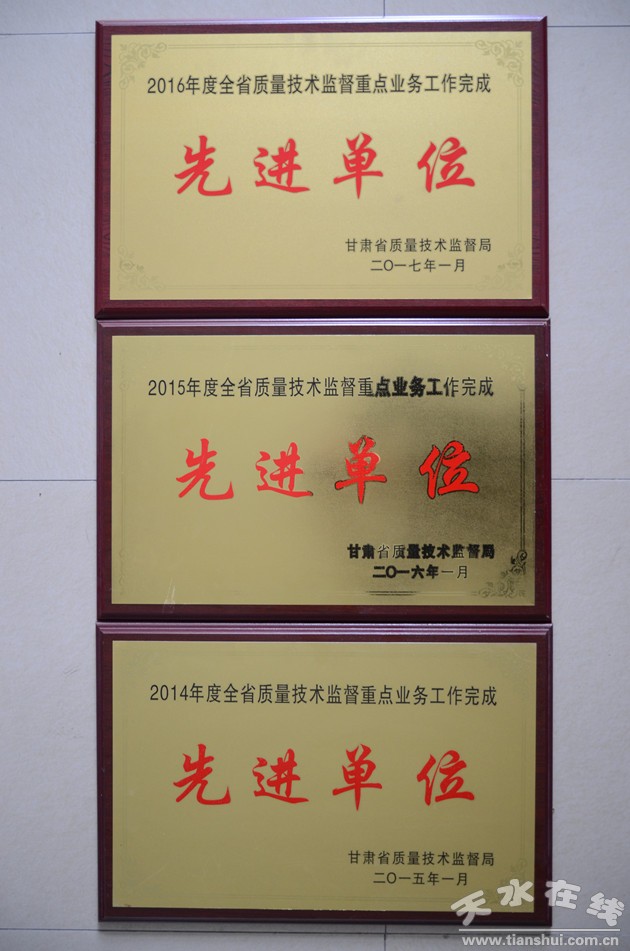 2016年度全省质量技术监督重点业务工作完成
先进单位
甘肃省质量技术监督局
二〇一七年一月
2015年度全省质量技术监督重点业务工作完成
先进单位
甘肃省质量技术监督局
二〇一六年一月
2014年度全省质量技术监督重点业务工作完成
先进单位
甘肃省质量技术监督局
二〇一五年一月
天水在线
www.tianshui.com.cn